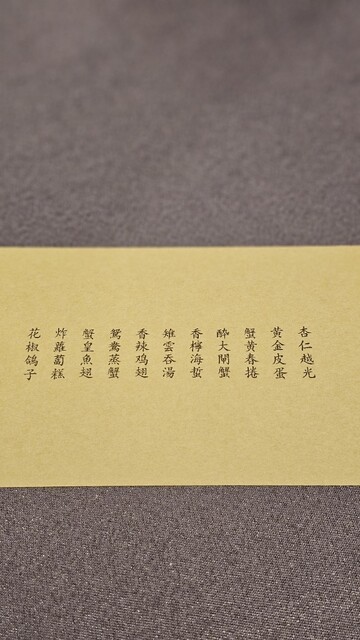 杏仁越光
黃金皮蛋
蟹黃春捲
醉大閘蟹
香檸海蜇
雉雲吞湯
香辣鸡翅
鴛鴦蒸蟹
蟹皇魚翅
炸蘿蔔糕
花椒鴿子